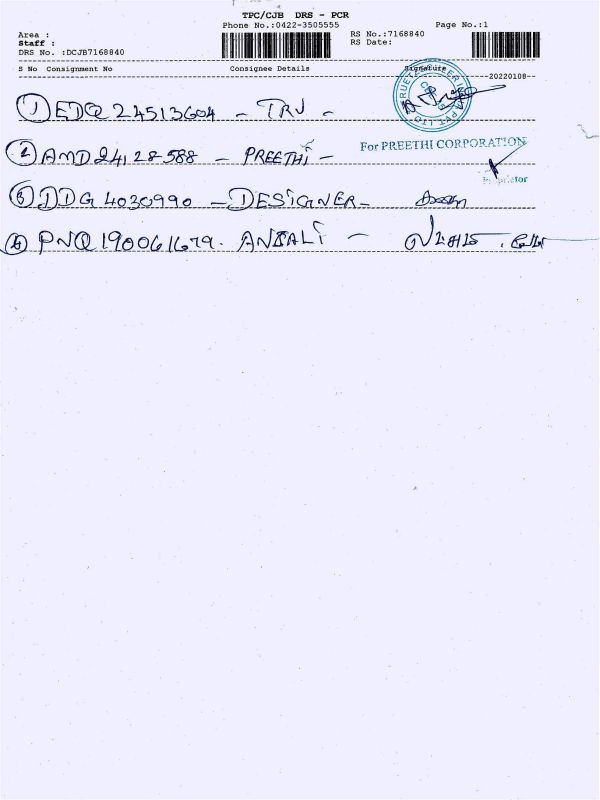 TPC/CJB DRS - PCR
Phone No.:0422-3505555
Page No.:1
Area :
RS No.:7168840
Staff :
RS Date:
DRS No. :DCJB7168840
S No Consignment No Consignee Details Signature
20220108
1 EDQ 24513604 - TRU -
2 AMD 24128588 - PREETHi -
For PREETHI CORPORATION
Proprietor
3 JDG 4030990 - DESiGNER -
PNQ 190061679. ANJALi -